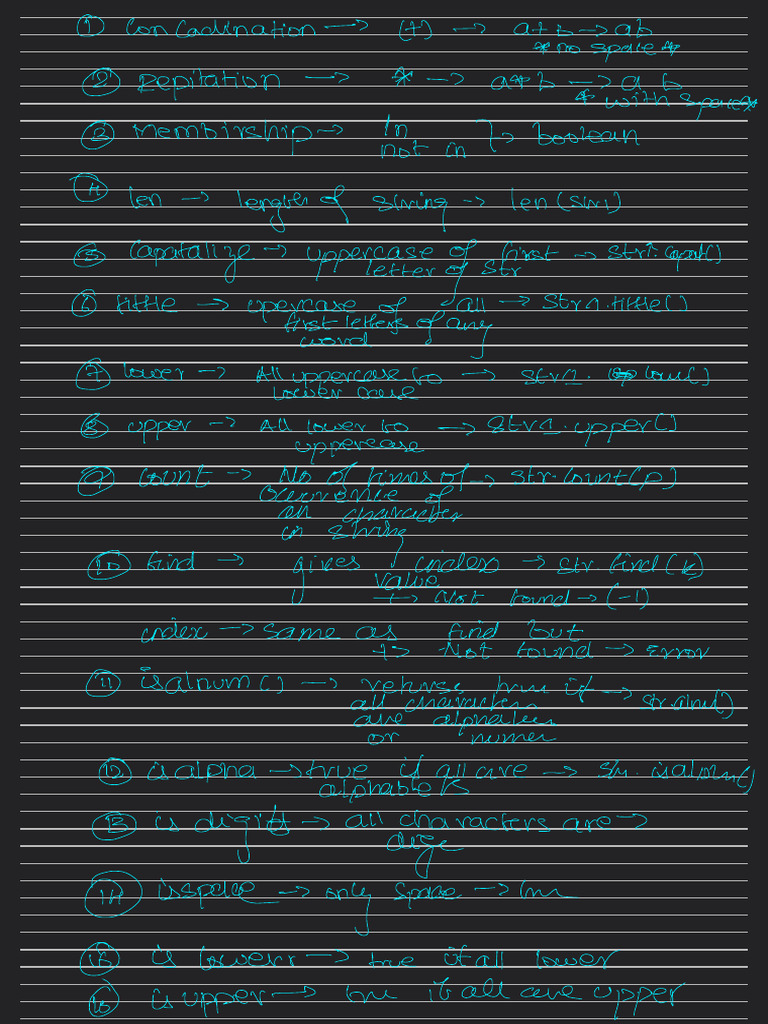 ① Concadination → (+) → a+b → ab
* no space *
② Repitation → * → a*b → a b
* with space *
③ Membirship → in } → boolean
not in
④ len → length of string → len(str1)
⑤ Capatalize → uppercase of first → str1.
letter of str
⑥ tittle → upercase of all → Str1.tittle()
first letters of any
word
⑦ lower → All uppercase to → str1. lower()
lower case
⑧ upper → All lower to → str1.upper()
uppercase
⑨ count → No of times of → str.count(p)
an character
in string
⑩ find → gives index → str find(k)
value
↦ Not found → (-1)
index → same as find but
↦ Not found → Error
⑪ isalnum() → true if →
all characters
are
or numer
⑫ is alpha → true if all are → str.
⑬ is digit → all characters are →
⑭ isspace → only space → true
⑮ is lowerr → true if all lower
is upper → true if all are upper